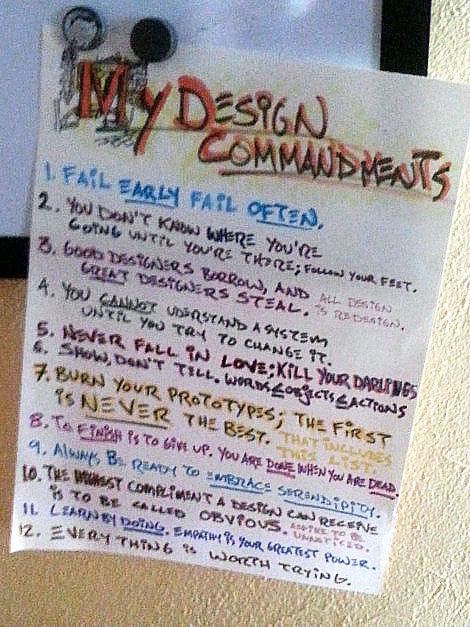 My DESIGN
COMMANDMENTS
1. FAIL EARLY FAIL OFTEN.
2. YOU DON'T KNOW WHERE YOU'RE
GOING UNTIL YOU'RE THERE; FOLLOW YOUR FEET.
3. GOOD DESIGNERS BORROW, AND
GREAT DESIGNERS STEAL. ALL DESIGN
IS REDESIGN.
4. YOU CANNOT UDERSTAND A SYSTEM
UNTIL YOU TRY TO CHANGE IT.
5. NEVER FALL IN LOVE; KILL YOUR DARLINGS
6. SHOW, DON'T TELL. WORDS ≤ OBJECTS ≤ ACTIONS
7. BURN YOUR PROTOTYPES; THE FIRST
IS NEVER THE BEST. THAT INCLUDES
THIS LIST.
8. TO FINISH IS TO GIVE UP. YOU ARE DONE WHEN YOU ARE DEAD.
9. ALWAYS BE READY TO EMBRACE SERENDIPITY.
10. THE HIGHEST COMPLIMENT A DESIGN CAN RECEIVE
IS TO BE CALLED OBVIOUS. ASPIRE TO BE
UNNOTICED.
11. LEARN BY DOING. EMPATHY IS YOUR GREATEST POWER.
12. EVERY THING IS WORTH TRYING.